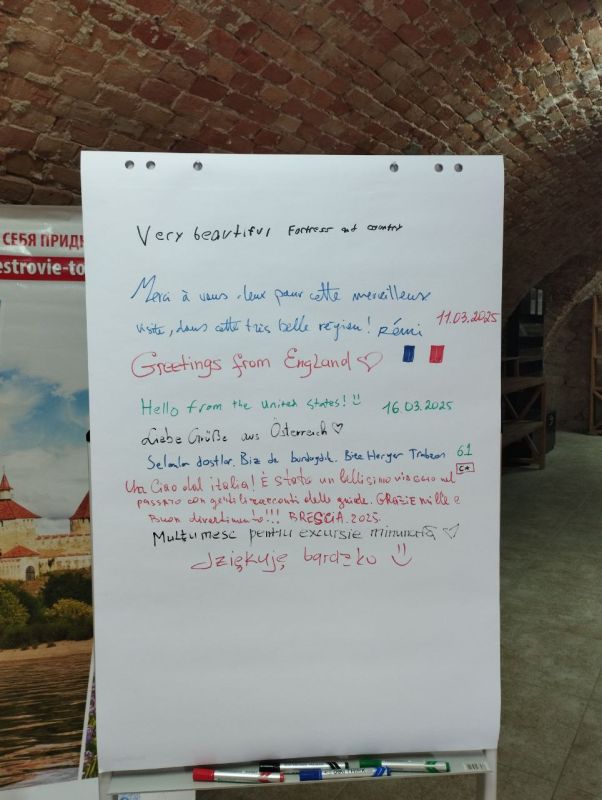 СЕБЯ ПРИДН
estrovie-to
Very beautiful Fortress and country
Merci à vous deux pour cette merveilleuse
visite, dans cette très belle région! Rémi 11.03.2025
Greetings from England
Hello from the United States! 16.03.2025
Liebe Grüße aus Österreich
Selamlar dostlar. Biz de burdaydık. Bize Heryer Trabzon 61
Un Ciao dal italia! È stato un bellisimo viaggio nel
passato con gentili racconti delle guide. GRAZIE mille e
Buon divertimento!!! BRESCIA. 2025.
Mulțumesc pentru excursie minunată
dziękuję bardzku